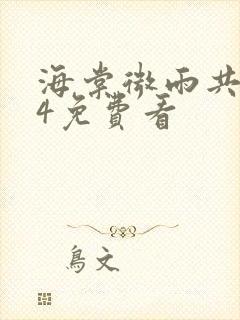 海棠微雨共
4免費看
鳥文